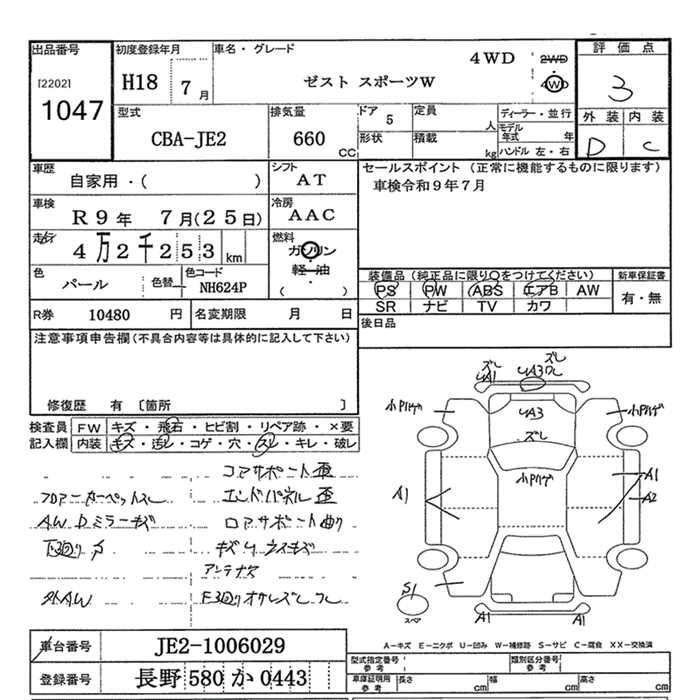 出品番号
[2202]
1047
初度登録年月
H18
7月
車名・グレード
ゼスト スポーツW
4WD
2WD
4WD
評価点
3
外装 内装
D C
型式
CBA-JE2
排気量
660
CC
ドア
5
定員
人
形状
積載
kg
ディーラー・並行
モデル年式 年
ハンドル 左・右
車歴
自家用・( )
シフト
AT
セールスポイント (正常に機能するものに限ります)
車検令和9年7月
車検
R9年 7月(25日)
冷房
AAC
走行
4万2千253
km
燃料
ガソリン
軽・油
( )
色
パール
色替
色コード
NH624P
装備品 (純正品に限り○をつけてください)
新車保証書
PS PW ABS エアB AW
SR ナビ TV カワ
有・無
R券
10480
円
名変期限 月 日
後日品
注意事項申告欄(不具合内容等は具体的に記入して下さい)
修復歴 有 〔箇所 〕
検査員記入欄
FW キズ・飛石・ヒビ割・リペア跡・×要
内装 キズ・汚レ・コゲ・穴・スレ・キレ・破レ
コアサポート歪
フロアーカーペットスレ
エンドパネル歪
A.W Dミラーキズ
ロアサポート曲り
下廻りサ
キズUラスキズ
アンテナ欠
外AW
ズレ
A1
UA3
UA3
ズレ
小Pハゲ
小Pハゲ
小Pハゲ
A1
A1
A2
S1
スペア
A1
A1
A-キズ E-エクボ U-凹み W-補修跡 S-サビ C-腐食 XX-交換済
車台番号
JE2-1006029
登録番号
長野 580 か 0443
型式指定番号
参考
類別区分番号
参考
車庫証明用
参考
長さ
cm
幅
cm
高さ
cm